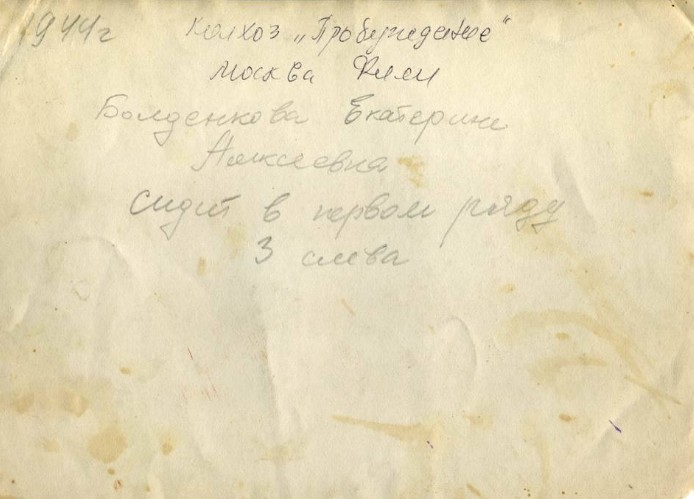 1944г Колхоз „Пробуждение"
Москва Фили
Болденкова Екатерина
Алексеевна
сидит в первом ряду
3 слева